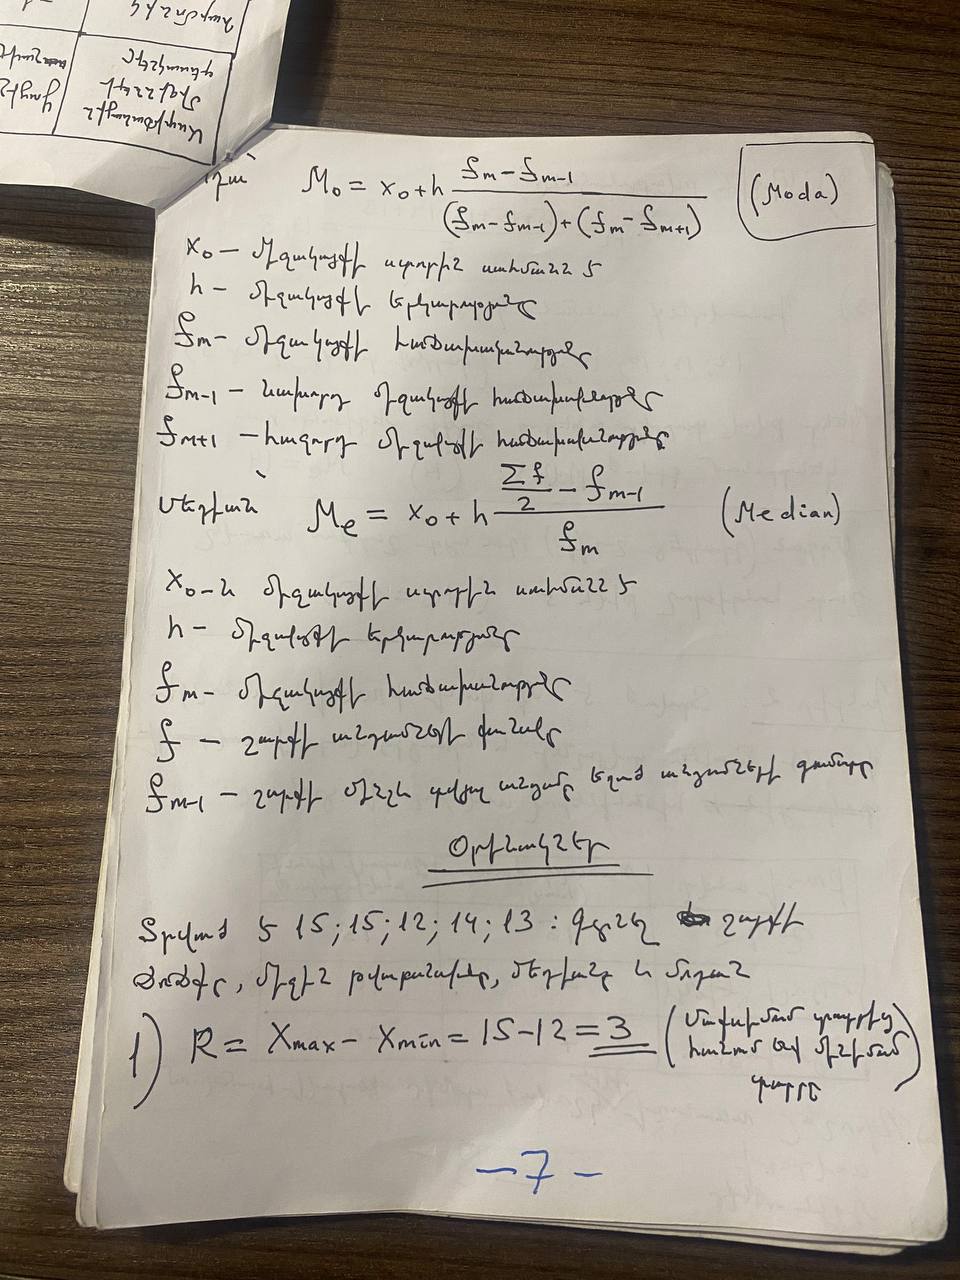 Mo = x₀ + h (fm − fm-1) / ((fm − fm-1) + (fm − fm+1)) (Moda)
x₀ – միջակայքի ստորին սահմանն է
h – միջակայքի երկարությունը
fm – միջակայքի հաճախականությունը
fm-1 – նախորդ միջակայքի հաճախականությունը
fm+1 – հաջորդ միջակայքի հաճախականությունը
Մեդիան՝ Me = x₀ + h (Σf/2 − fm-1) / fm (Median)
x₀-ն միջակայքի ստորին սահմանն է
h – միջակայքի երկարությունը
fm – միջակայքի հաճախականությունը
f – շարքի անդամների քանակը
fm-1 – շարքի մինչև տվյալ անդամը եղած անդամների գումարը
Օրինակներ
Տրված է 15; 15; 12; 14; 13 : Գտնել շարքի
մեդիանը և մոդան
1) R = Xmax − Xmin = 15−12 = 3 (Մաքսիմում տարրից
հանում ենք մինիմում
տարրը
–7–